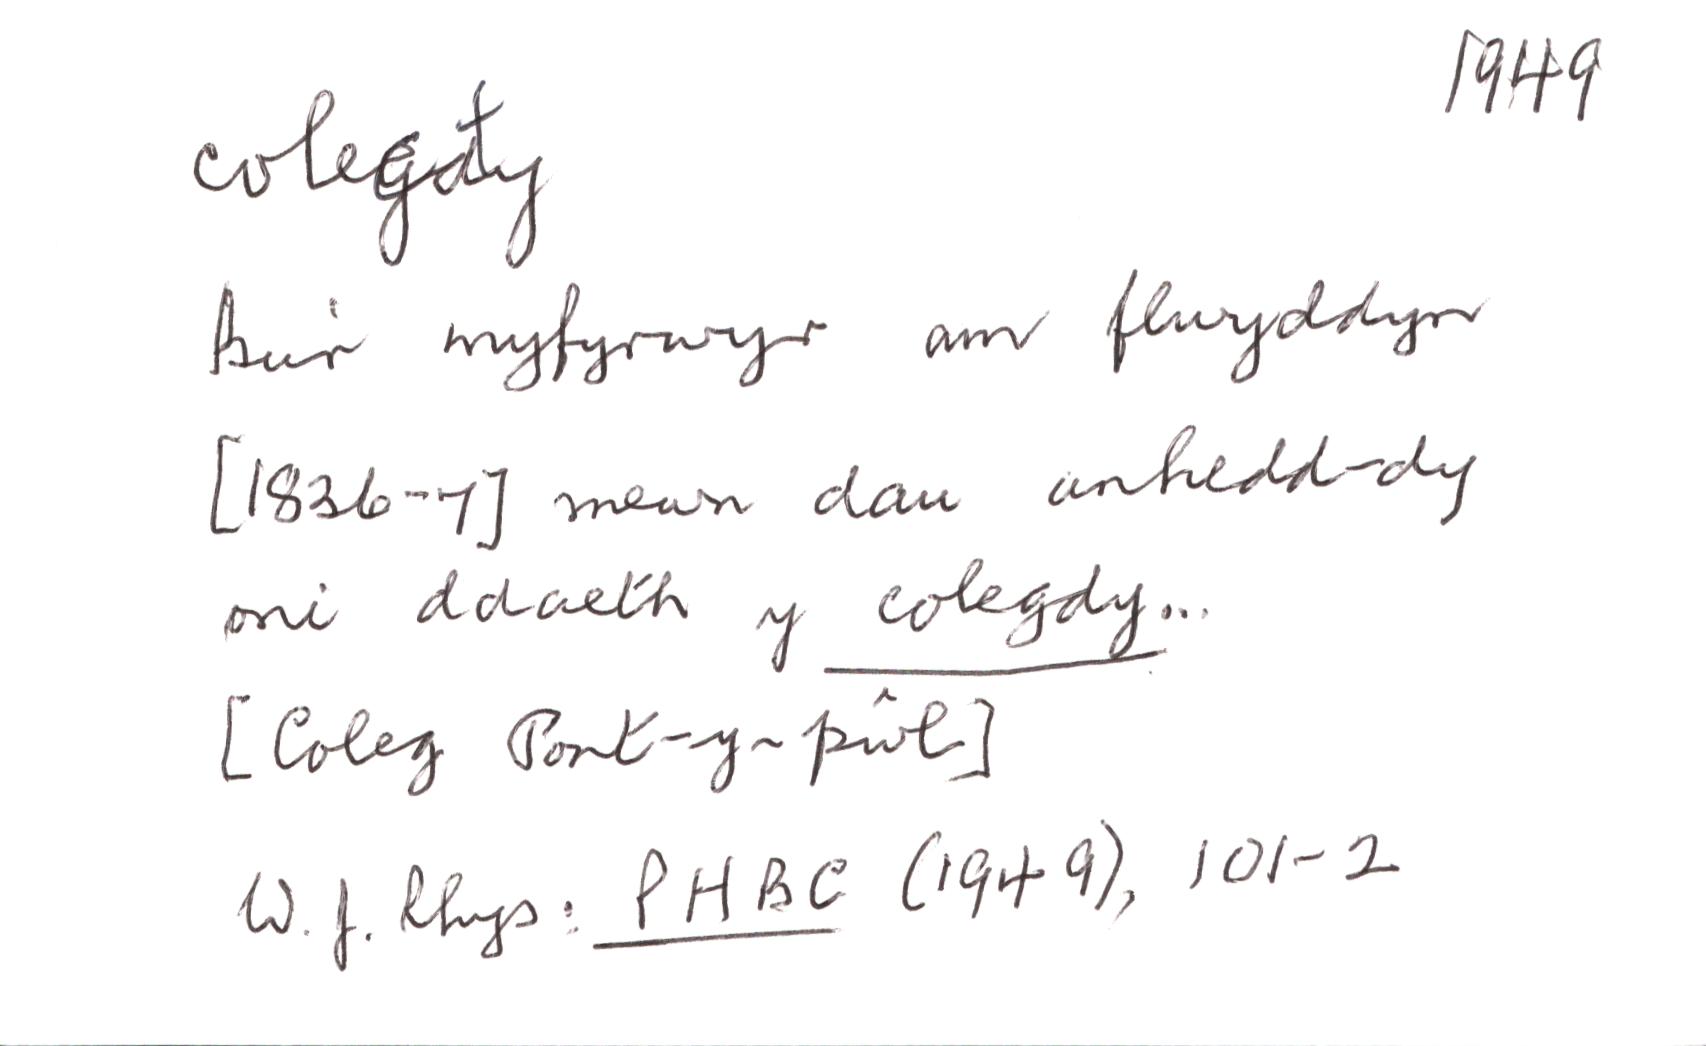 1949
colegdy
Bu'r myfyrwyr am flwyddyn
[1836-7] mewn dau anhedd-dy
oni ddaeth y colegdy...
[Coleg Pont-y-pŵl]
W. J. Rhys: PHBC (1949), 101-2